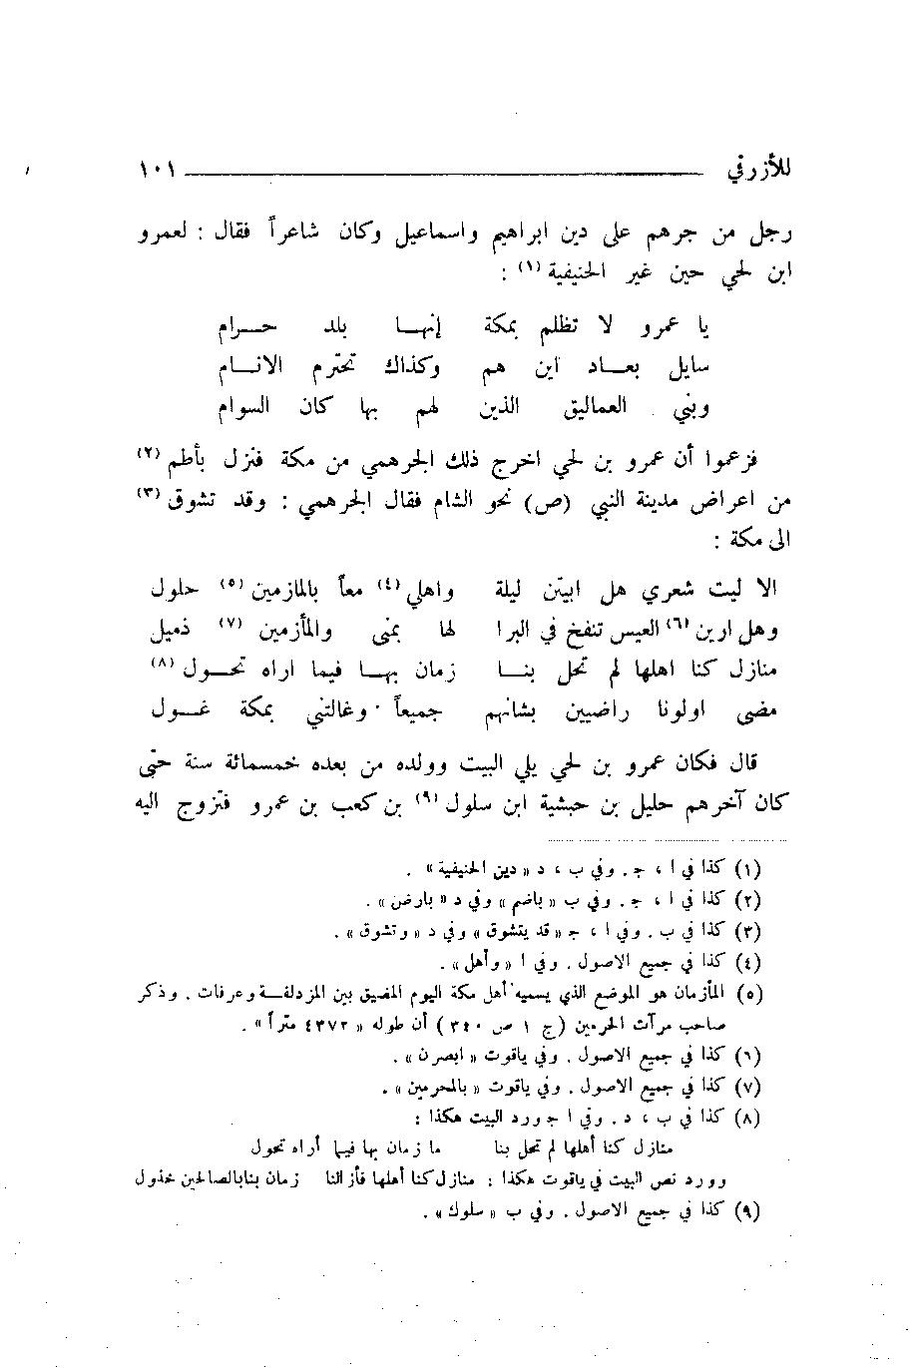 للأزرقي ١٠١
رجل من جرهم على دين ابراهيم واسماعيل وكان شاعراً فقال : لعمرو
ابن لحي حين غير الحنيفية (١) :
يا عمرو لا تظلم بمكة إنهـا بلد حـرام
سايل بعـاد اين هم وكذاك تحترم الانـام
وبني العماليق الذين لهم بها كان السوام
فزعموا أن عمرو بن لحي اخرج ذلك الجرهمي من مكة فنزل بأطم (٢)
من اعراض مدينة النبي (ص) نحو الشام فقال الجرهمي : وقد تشوق (٣)
الى مكة :
الا ليت شعري هل ابيتن ليلة واهلي (٤) معاً بالمازمين (٥) حلول
وهل ارين (٦) العيس تنفخ في البرا لها بمنى والمأزمين (٧) ذميل
منازل كنا اهلها لم تحل بنـا زمان بهـا فيما اراه تحـول (٨)
مضى اولونا راضيين بشانهم جميعاً وغالتني بمكة غـول
قال فكان عمرو بن لحي يلي البيت وولده من بعده خمسمائة سنة حتى
كان آخرهم حليل بن حبشية ابن سلول (٩) بن كعب بن عمرو فتزوج اليه
(١) كذا في ا ، ج . وفي ب ، د « دين الحنيفية » .
(٢) كذا في ا ، ج . وفي ب « باضم » وفي د « بارض » .
(٣) كذا في ب . وفي ا ، ج « قد يتشوق » وفي د « وتشوق » .
(٤) كذا في جميع الاصول . وفي ا « وأهل » .
(٥) المأزمان هو الموضع الذي يسميه أهل مكة اليوم المضيق بين المزدلفـة وعرفات . وذكر
صاحب مرآت الحرمين (ج ١ ص ٣٤٠) أن طوله « ٤٣٧٢ متراً » .
(٦) كذا في جميع الاصول . وفي ياقوت « ابصرن » .
(٧) كذا في جميع الاصول . وفي ياقوت « بالمحرمين » .
(٨) كذا في ب ، د . وفي ا ج ورد البيت هكذا :
منازل كنا أهلها لم تحل بنا ما زمان بها فيما أراه تحول
وورد نص البيت في ياقوت هكذا : منازل كنا أهلها فأزالنا زمان بنا بالصالحين خذول
(٩) كذا في جميع الاصول . وفي ب « سلوك » .